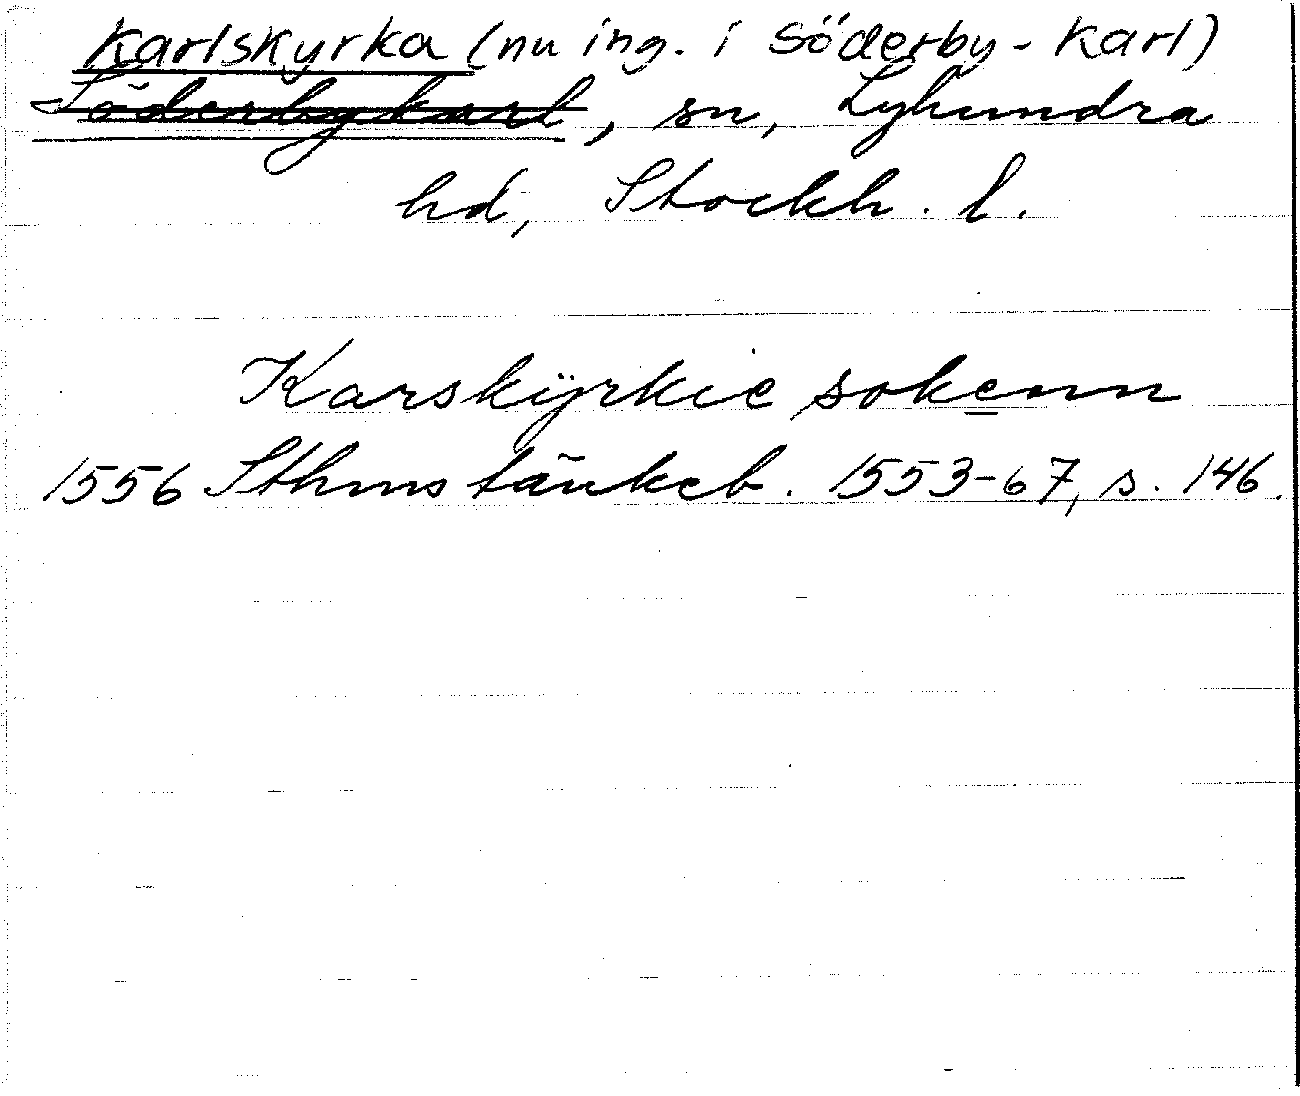 Karlskyrka (nu ing. i Söderby-Karl)
Söderbykarl, sn, Lyhundra
hd, Stockh. l.
Karskÿrkie sokenn
1556 Sthms tänkeb. 1553-67, s. 146.